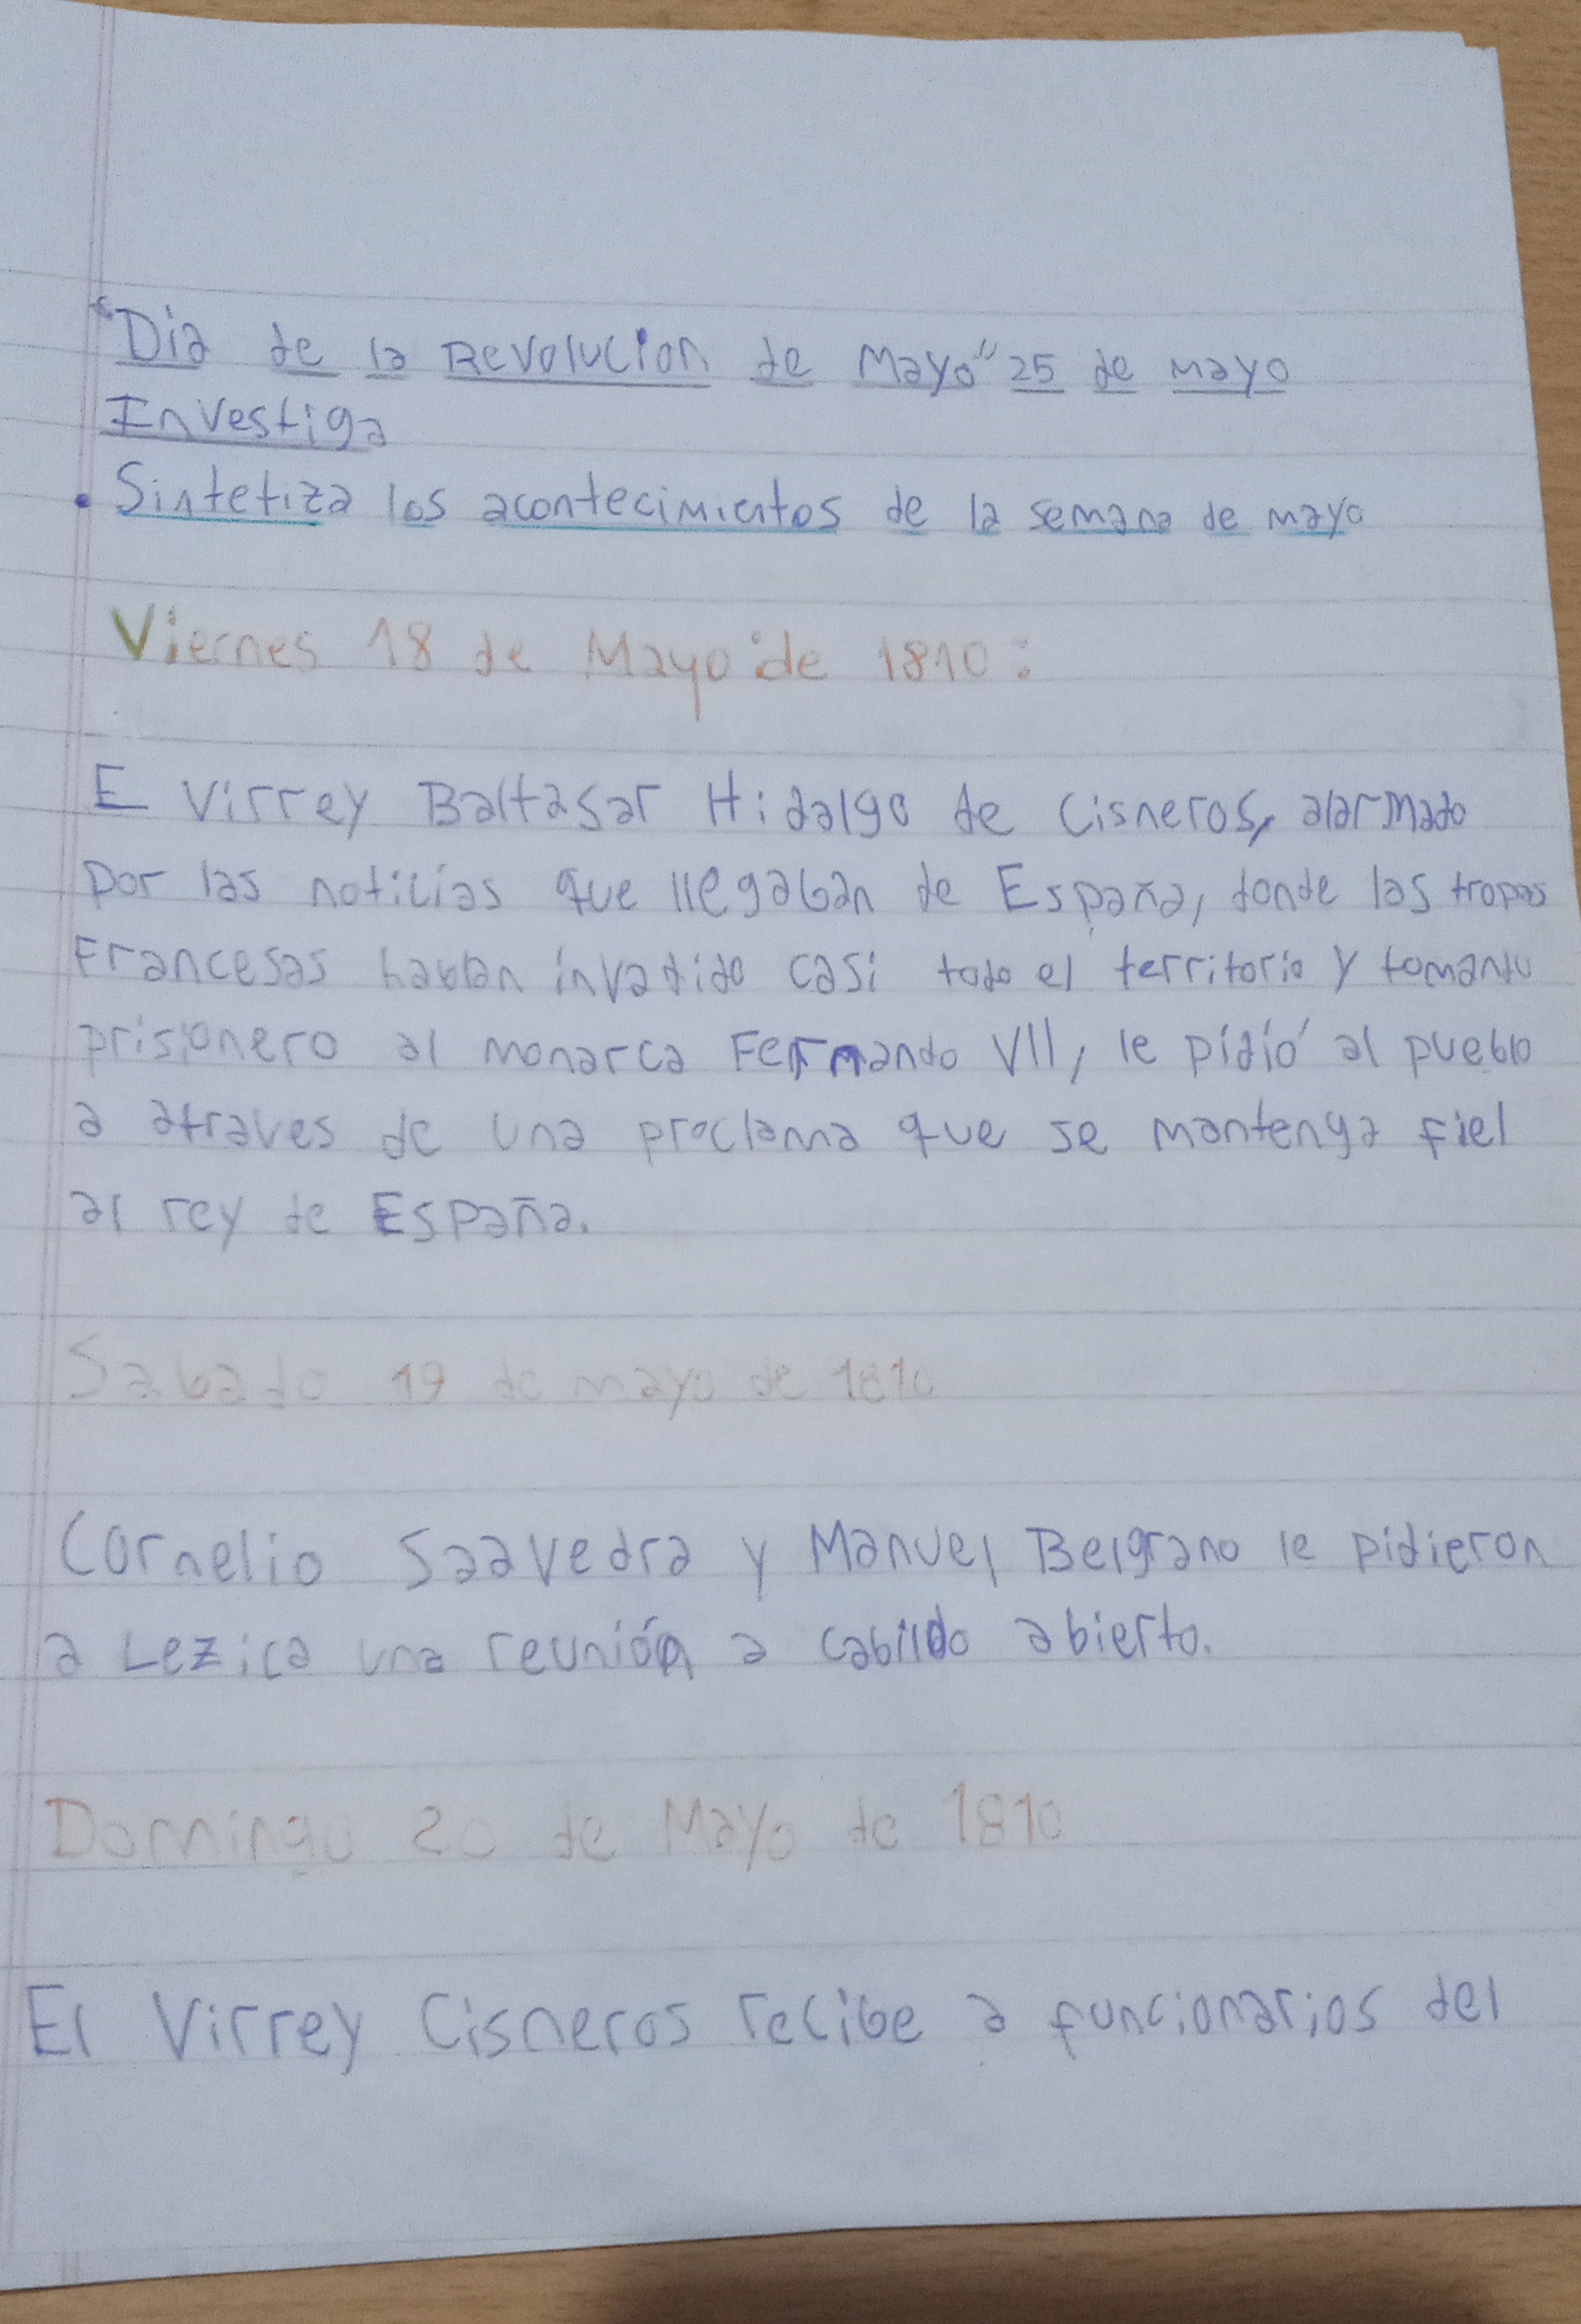 "Dia de la Revolucion de Mayo" 25 de mayo
Investiga
• Sintetiza los acontecimientos de la semana de mayo
Viernes 18 de Mayo de 1810:
E Virrey Baltasar Hidalgo de Cisneros, alarmado
por las noticias que llegaban de España, donde las tropas
Francesas habían invadido casi todo el territorio y tomando
prisionero al monarca Fernando VII, le pidió al pueblo
a atraves de una proclama que se mantenga fiel
al rey de España.
Sabado 19 de mayo de 1810
Cornelio Saavedra y Manuel Belgrano le pidieron
a Lezica una reunión a cabildo abierto.
Domingo 20 de Mayo de 1810
El Virrey Cisneros recibe a funcionarios del